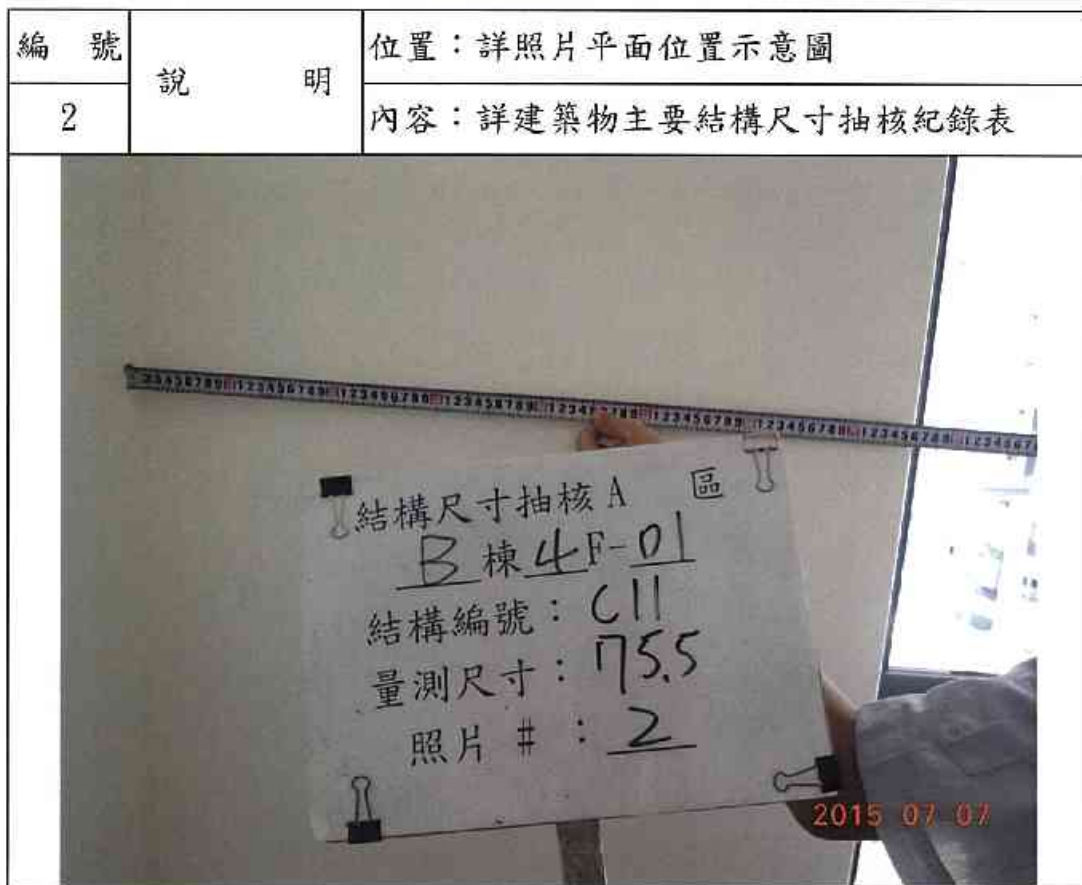 編 號
說 明
位置：詳照片平面位置示意圖
2
內容：詳建築物主要結構尺寸抽核紀錄表
結構尺寸抽核A 區
B棟4F-01
結構編號：C11
量測尺寸：75.5
照片 #：2
2015 07 07